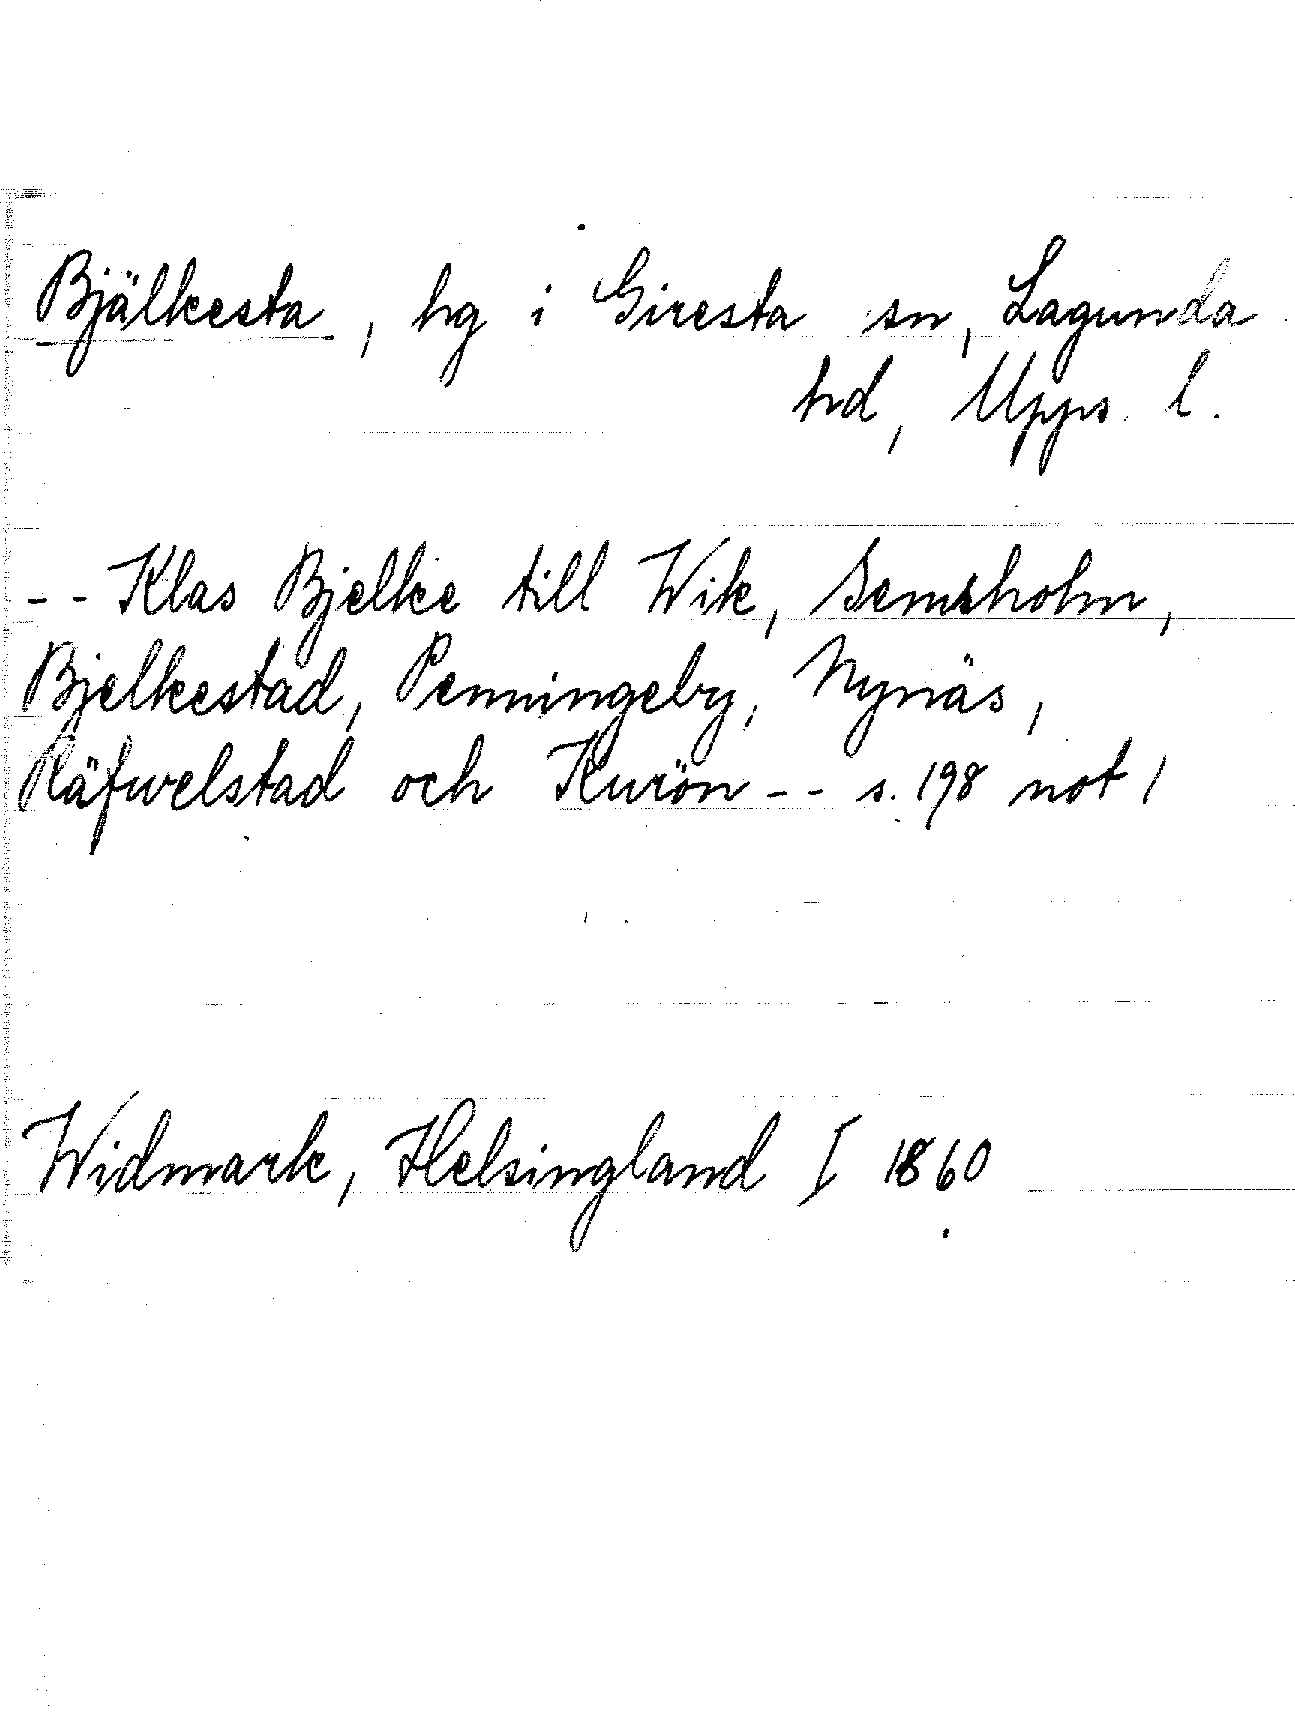 Bjälkesta, hg i Giresta sn, Lagunda
hd, Upps. l.
-- Klas Bjelke till Wik, Semsholm,
Bjelkestad, Penningeby, Nynäs,
Räfwelstad och Kurön -- s. 198 not 1
Widmark, Helsingland I 1860